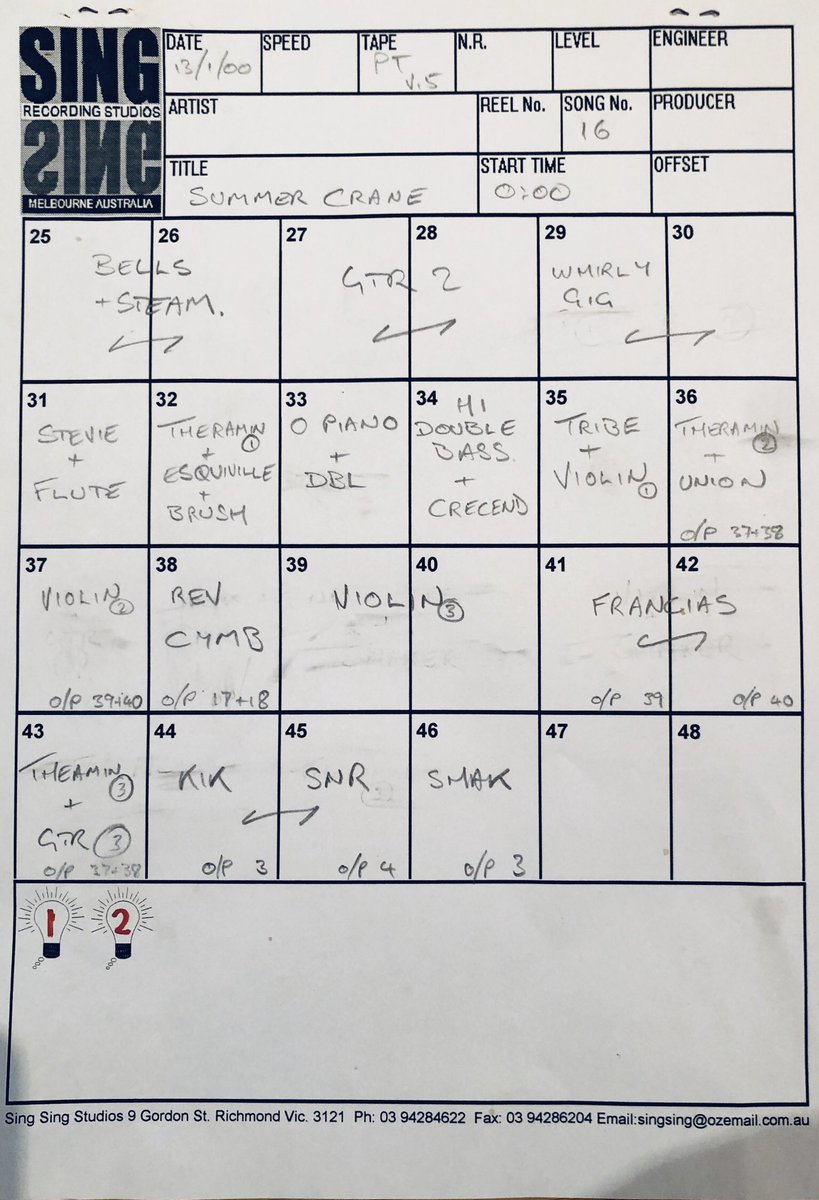 SING
RECORDING STUDIOS
SING
MELBOURNE AUSTRALIA
DATE
13/1/00
SPEED
TAPE
PT
V.5
N.R.
LEVEL
ENGINEER
ARTIST
REEL No.
SONG No.
16
PRODUCER
TITLE
SUMMER CRANE
START TIME
0:00
OFFSET
25
26
BELLS
+ STEAM.
27
28
GTR 2
29
30
WHIRLY
GIG
31
STEVIE
+
FLUTE
32
THERAMIN
1
+
ESQUIVILLE
+
BRUSH
33
O PIANO
+
DBL
34
HI
DOUBLE
BASS.
+
CRECEND
35
TRIBE
+
VIOLIN 1
36
THERAMIN
2
+
UNION
O/P 37+38
37
VIOLIN 2
O/P 39+40
38
REV
CYMB
O/P 17+18
39
40
VIOLIN 3
41
42
FRANGIAS
O/P 39
O/P 40
43
THEAMIN
3
+
GTR 3
O/P 37+38
44
KIK
O/P 3
45
SNR
O/P 4
46
SMAK
O/P 3
47
48
1 2
Sing Sing Studios 9 Gordon St. Richmond Vic. 3121 Ph: 03 94284622 Fax: 03 94286204 Email:singsing@ozemail.com.au